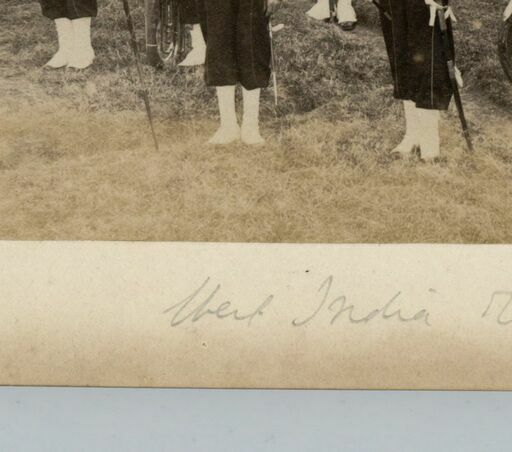 West India